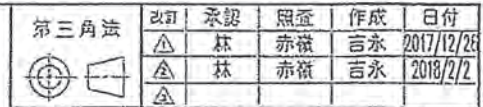 第三角法
改訂 承認 照査 作成 日付
1 林 赤嶺 吉永 2017/12/28
2 林 赤嶺 吉永 2018/2/2
3